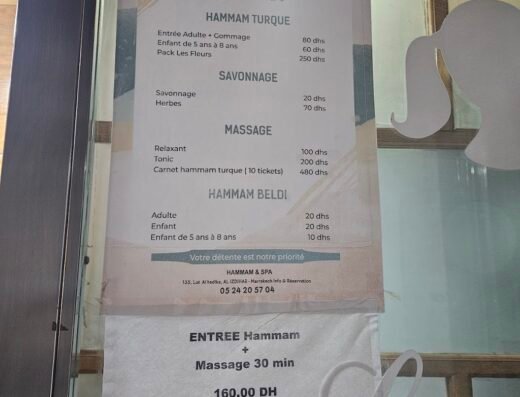 HAMMAM TURQUE
Entrée Adulte + Gommage 80 dhs
Enfant de 5 ans à 8 ans 60 dhs
Pack Les Fleurs 250 dhs
SAVONNAGE
Savonnage 20 dhs
Herbes 70 dhs
MASSAGE
Relaxant 100 dhs
Tonic 200 dhs
Carnet hammam turque ( 10 tickets) 480 dhs
HAMMAM BELDI
Adulte 20 dhs
Enfant 20 dhs
Enfant de 5 ans à 8 ans 10 dhs
Votre détente est notre priorité
HAMMAM & SPA
AL IZDIHAR - Marrakech Info & Réservation
05 24 20 57 04
ENTREE Hammam
+
Massage 30 min
160,00 DH